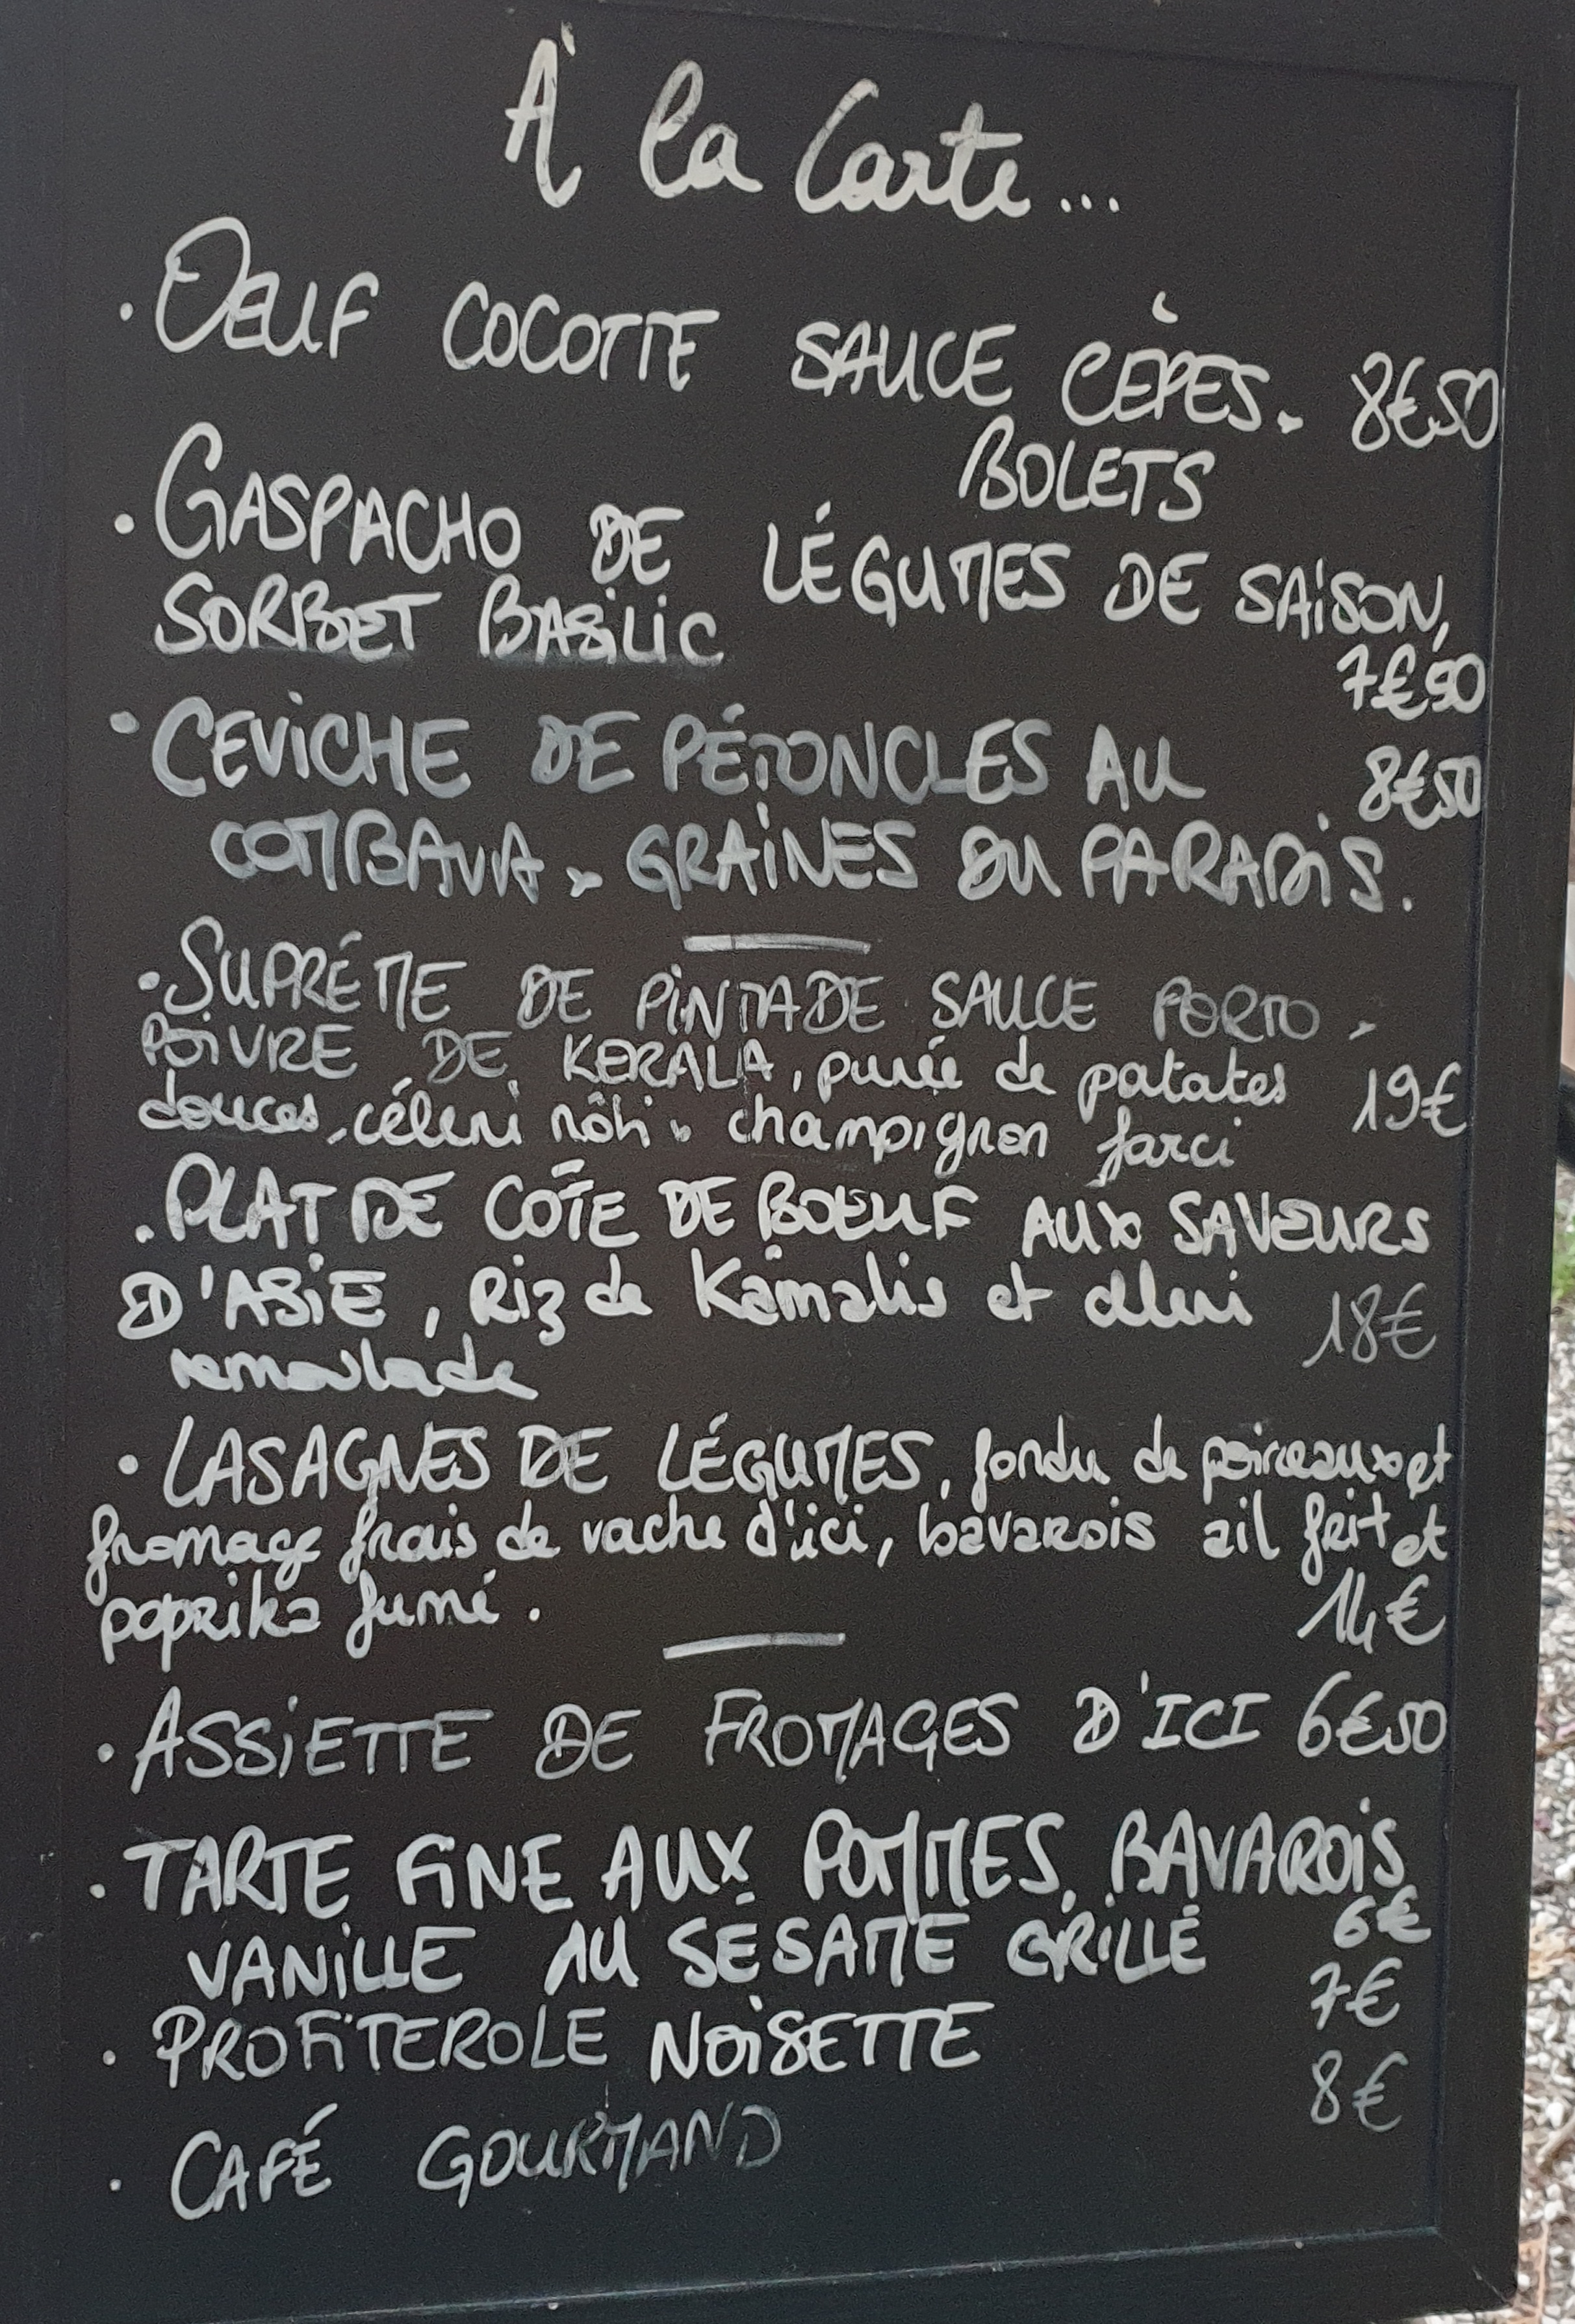 À la Carte...
• OEUF COCOTTE SAUCE CÈPES. 8€50
BOLETS
• GASPACHO DE LÉGUMES DE SAISON,
SORBET BASILIC
7€50
• CEVICHE DE PÉTONCLES AU 8€50
COMBAVA. GRAINES DU PARADIS.
• SUPRÉME DE PINTADE SAUCE PORTO.
POIVRE DE KERALA, purée de patates 19€
douces, céleri rôti. champignon farci
. PLAT DE CÔTE DE BOEUF AUX SAVEURS
D'ASIE, Riz de Kâmalis et céleri 18€
remoulade
• LASAGNES DE LÉGUMES, fondu de poireaux et
fromage frais de vache d'ici, bavarois ail frit et
paprika fumé. 14€
• ASSIETTE DE FROMAGES D'ICI 6€50
• TARTE FINE AUX POMMES, BAVAROIS
VANILLE AU SÉSAME GRILLÉ 6€
• PROFITEROLE NOISETTE 7€
• CAFÉ GOURMAND 8€